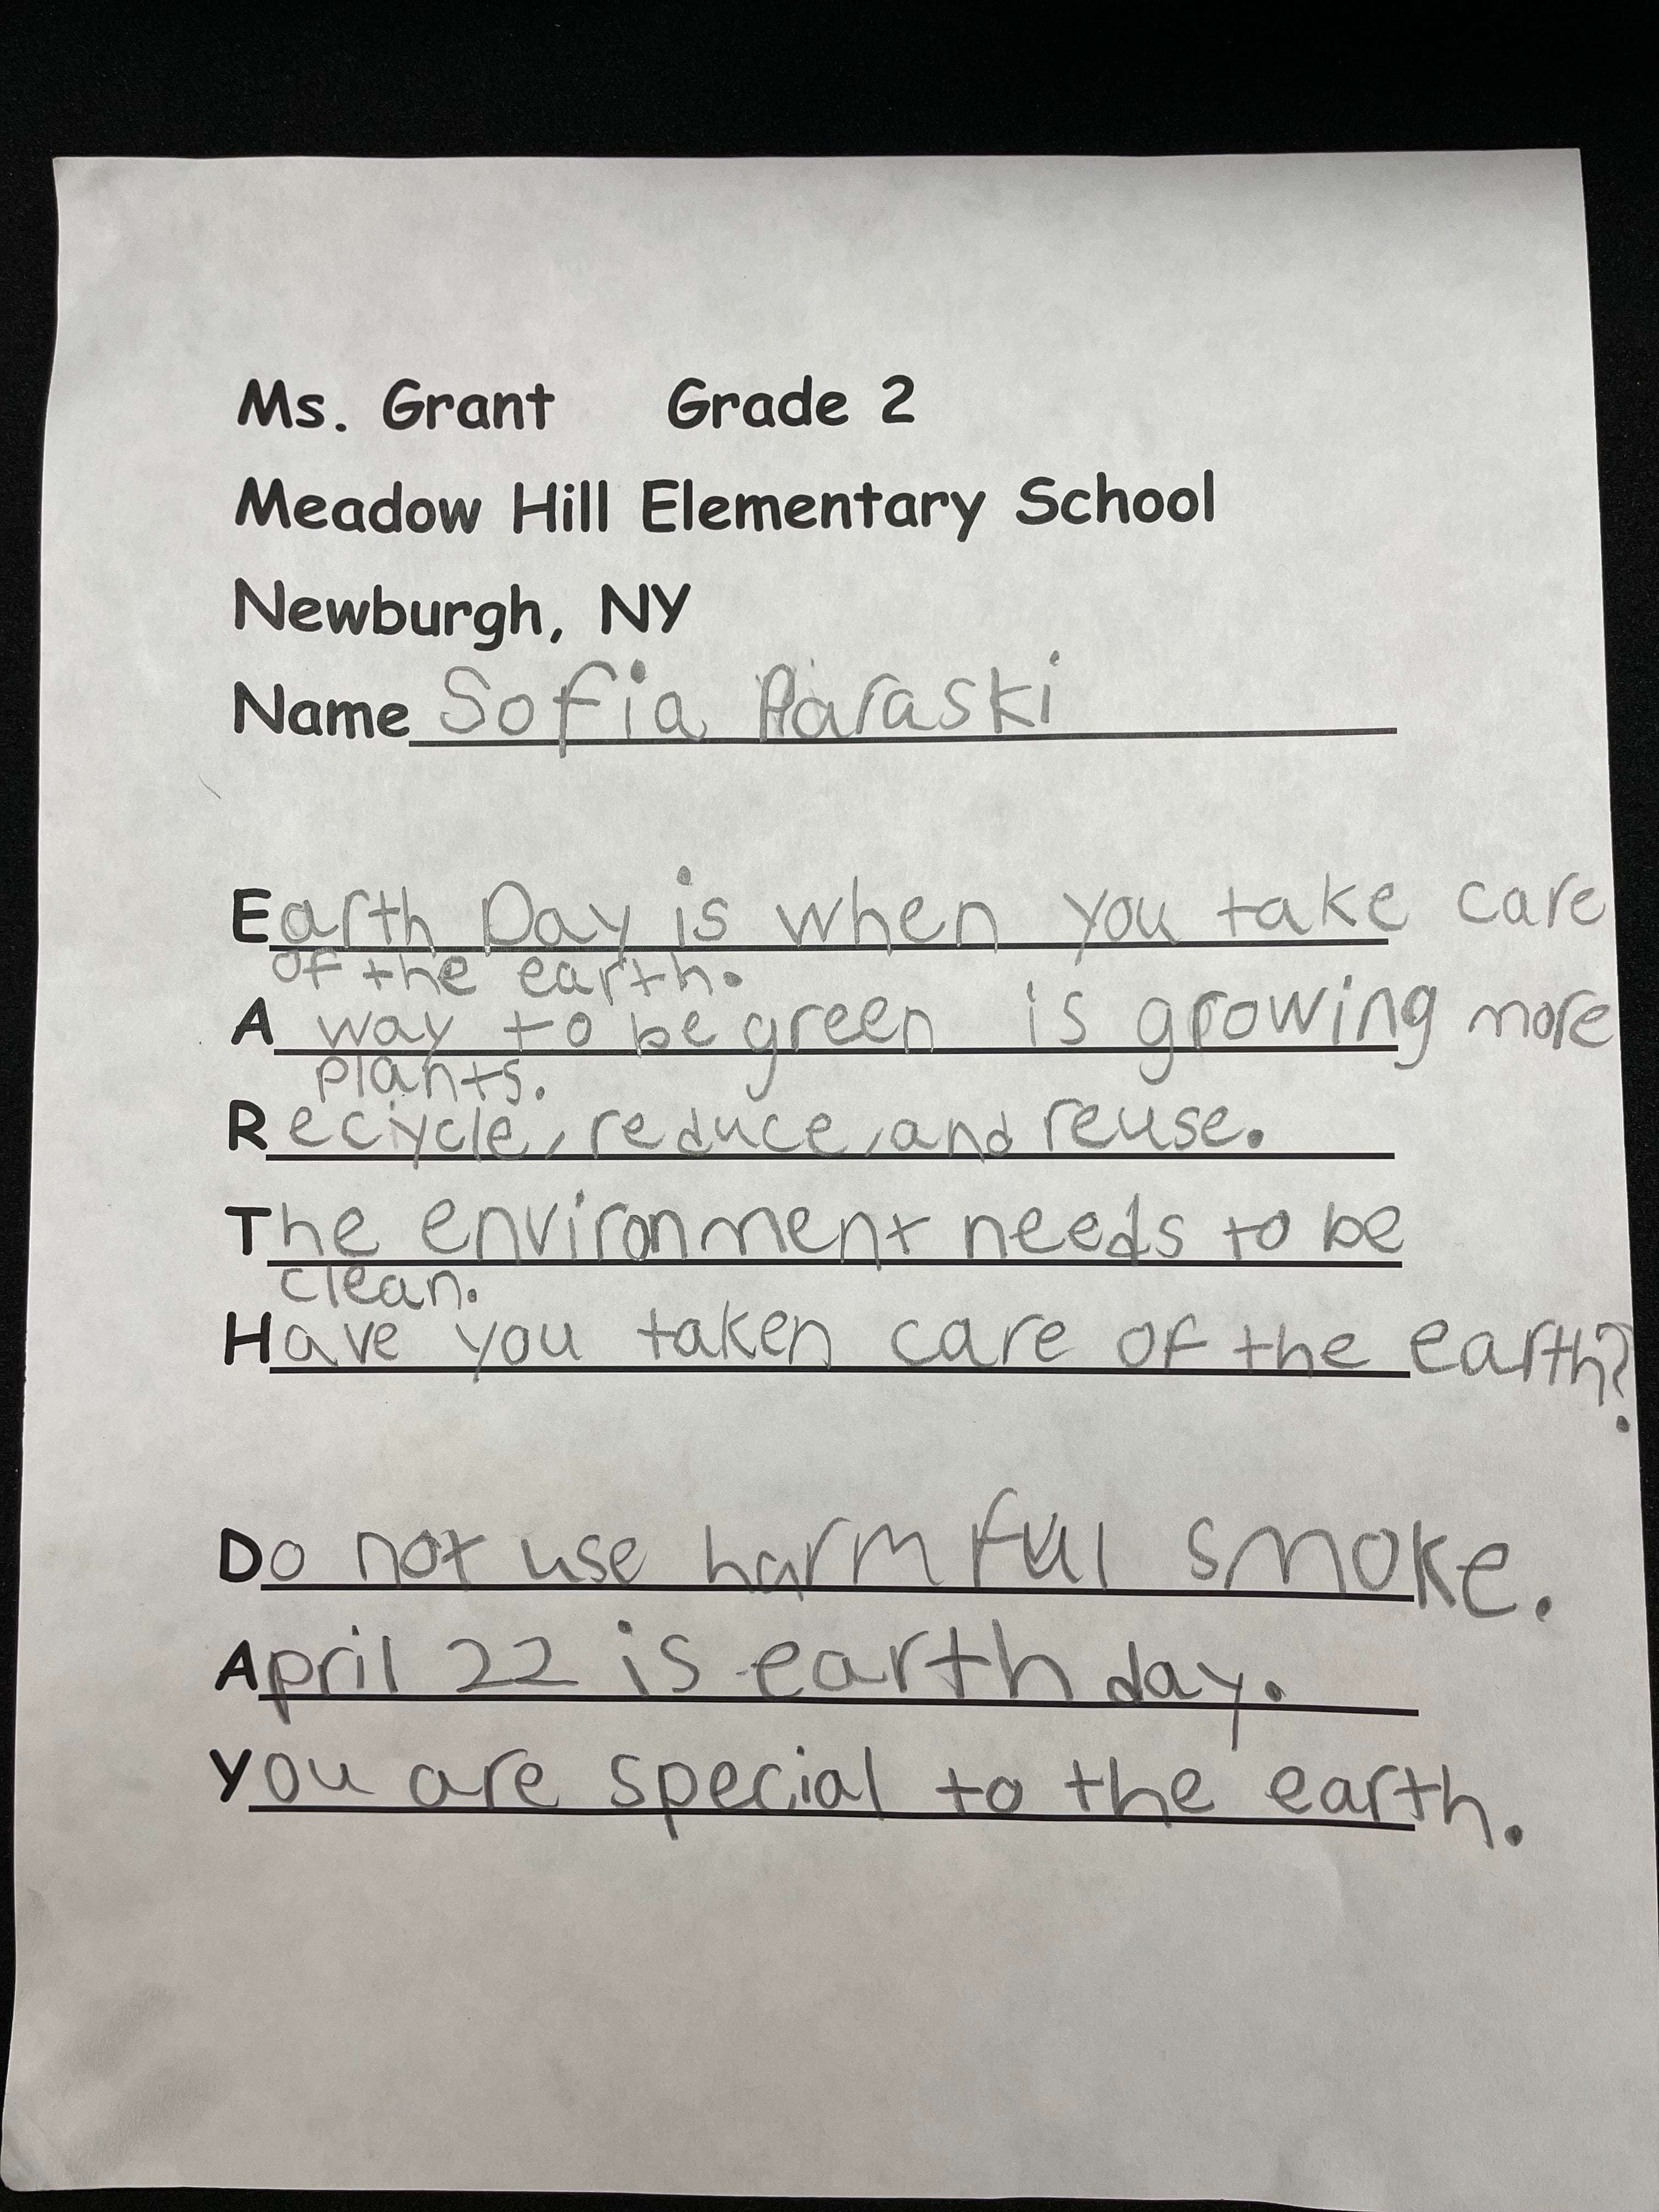 Ms. Grant Grade 2
Meadow Hill Elementary School
Newburgh, NY
Name Sofia Paraski
Earth Day is when you take care
of the earth.
A way to be green is growing more
plants.
Reciycle, reduce, and reuse.
The environment needs to be
clean.
Have you taken care of the earth?
Do not use harmful smoke.
April 22 is earth day.
You are special to the earth.